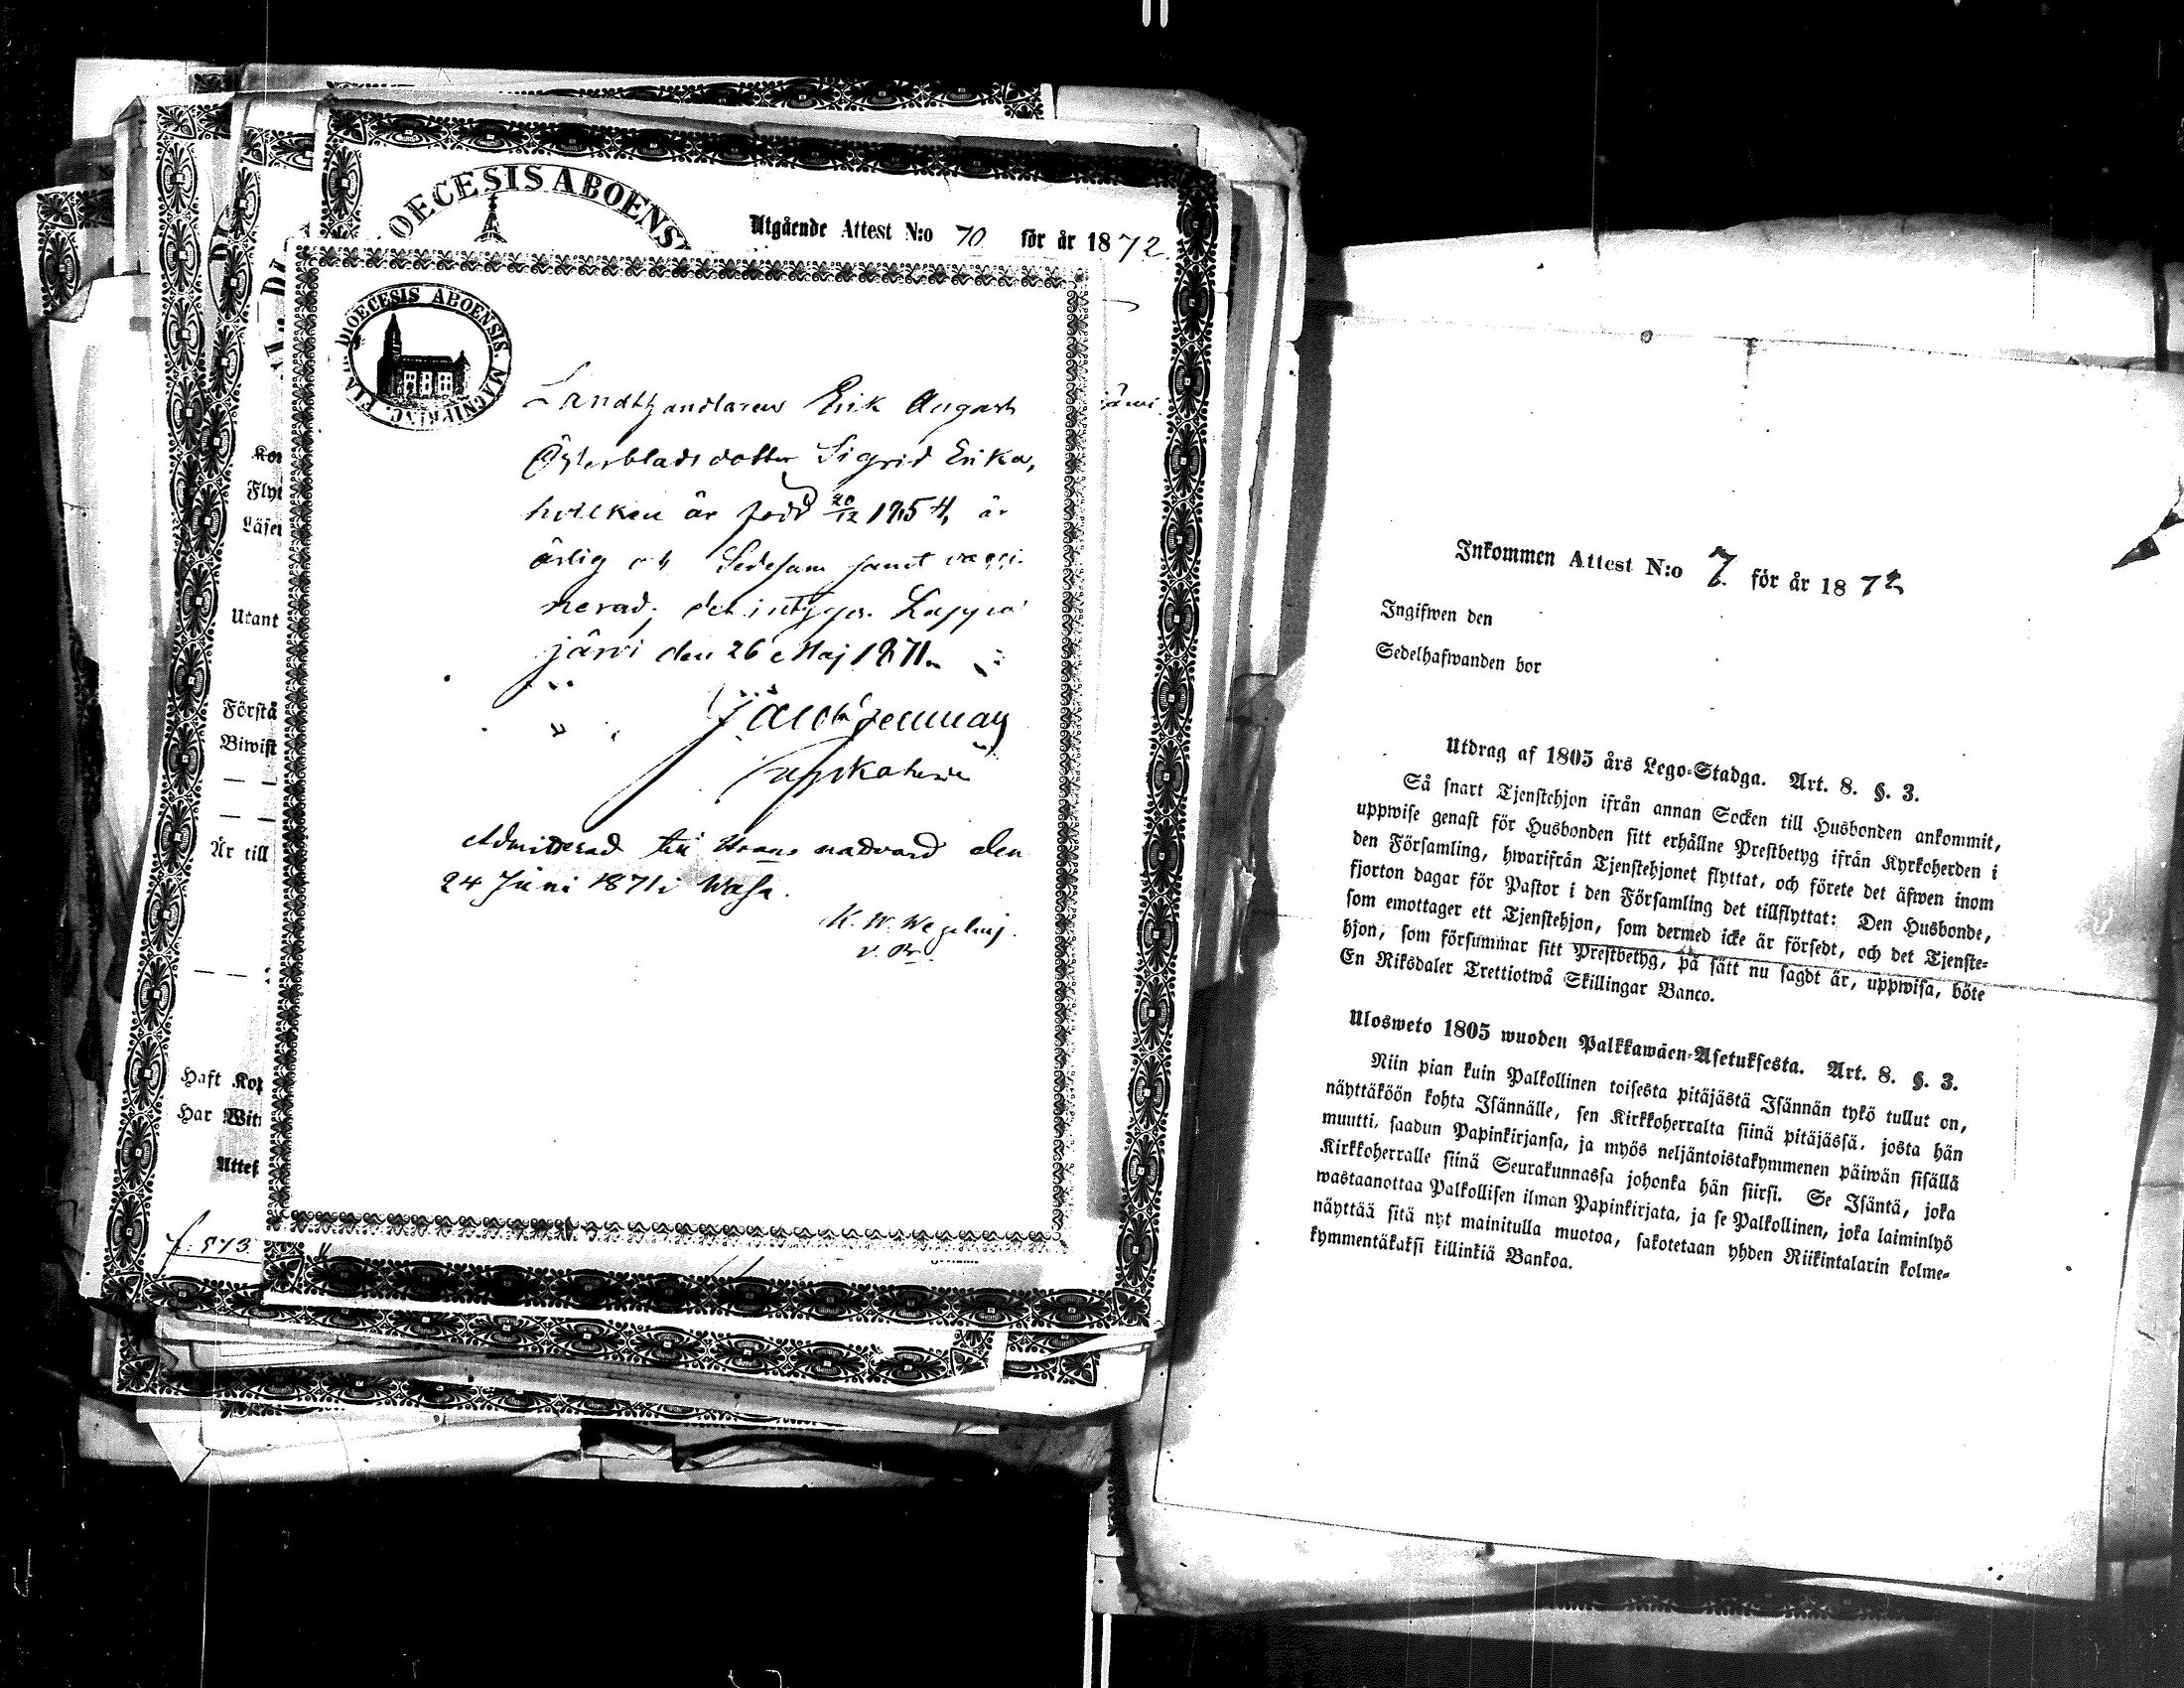 DIOECESIS ABOENS
Utgående Attest N:o 70 för år 1872.
DIOECESIS ABOENSIS. MAGNI PRINC.
Landthandlaren Erik August
Österblads dotter Sigrid Erika,
hvilken är född 20/12 1854, är
ärlig och Sedesam samt vacci-
nerad; det intygar. Lappa-
järvi den 26 Maj 1871.
Admitterad till Herrans nattvard den
24 Juni 1871 i Wasa.
K. W. Wegelius.
v. Pr.
järvi
Kor
Flyt
Läser
Utant
Förstå
Biwist
Är till
Haft Kop
Har Wit
Attes
f. 573
Inkommen Attest N:o 7 för år 1872
Ingifwen den
Sedelhafwanden bor
Utdrag af 1805 års Lego-Stadga. Art. 8. §. 3.
Så snart Tjenstehjon ifrån annan Socken till Husbonden ankommit,
uppwise genast för Husbonden sitt erhållne Prestbetyg ifrån Kyrkoherden i
den Församling, hwarifrån Tjenstehjonet flyttat, och förete det äfwen inom
fjorton dagar för Pastor i den Församling det tillflyttat: Den Husbonde,
som emottager ett Tjenstehjon, som dermed icke är försedt, och det Tjenste-
hjon, som försummar sitt Prestbetyg, på sätt nu sagdt är, uppwisa, böte
En Riksdaler Trettiotwå Skillingar Banco.
Ulosweto 1805 wuoden Palkkawäen-Asetuksesta. Art. 8. §. 3.
Niin pian kuin Palkollinen toisesta pitäjästä Isännän tykö tullut on,
näyttäköön kohta Isännälle, sen Kirkkoherralta siinä pitäjässä, josta hän
muutti, saadun Papinkirjansa, ja myös neljäntoistakymmenen päiwän sisällä
Kirkkoherralle siinä Seurakunnassa johonka hän siirsi. Se Isäntä, joka
wastaanottaa Palkollisen ilman Papinkirjata, ja se Palkollinen, joka laiminlyö
näyttää sitä nyt mainitulla muotoa, sakotetaan yhden Riikintalarin kolme-
kymmentäkaksi killinkiä Bankoa.